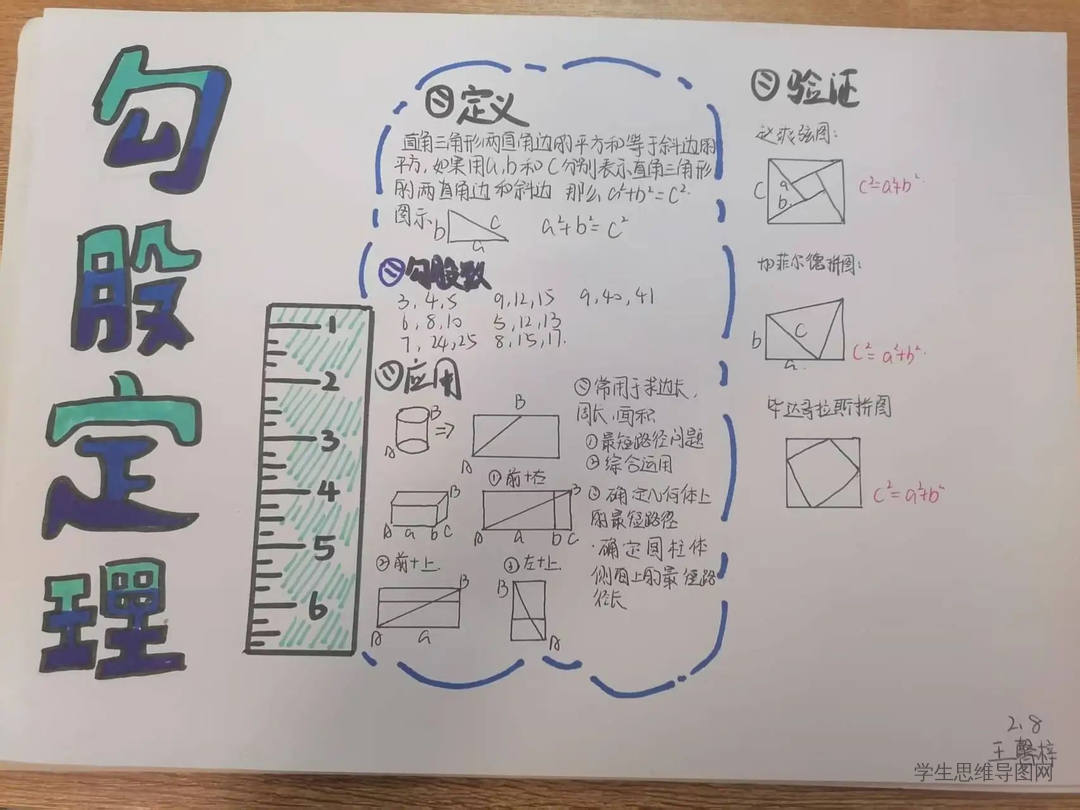 勾股定理
定义
直角三角形两直角边的平方和等于斜边的
平方,如果用a,b和c分别表示直角三角形
的两直角边和斜边 那么a²+b²=c²
图示 b c a a²+b²=c²
勾股数
3,4,5 9,12,15 9,40,41
6,8,10 5,12,13
7,24,25 8,15,17.
应用
A B => A B
①前+右
A a b c B A a b c B
②前+上 ③左+上
A a B B A
常用于求边长,
周长,面积
①最短路径问题
②综合运用
确定几何体上
的最短路径
·确定圆柱体
侧面上的最短路
径长
1
2
3
4
5
6
验证
赵爽弦图:
c a b c²=a²+b²
加菲尔德拼图:
b c a c²=a²+b²
毕达哥拉斯拼图
c²=a²+b²
2.8
王馨梓
学生思维导图网